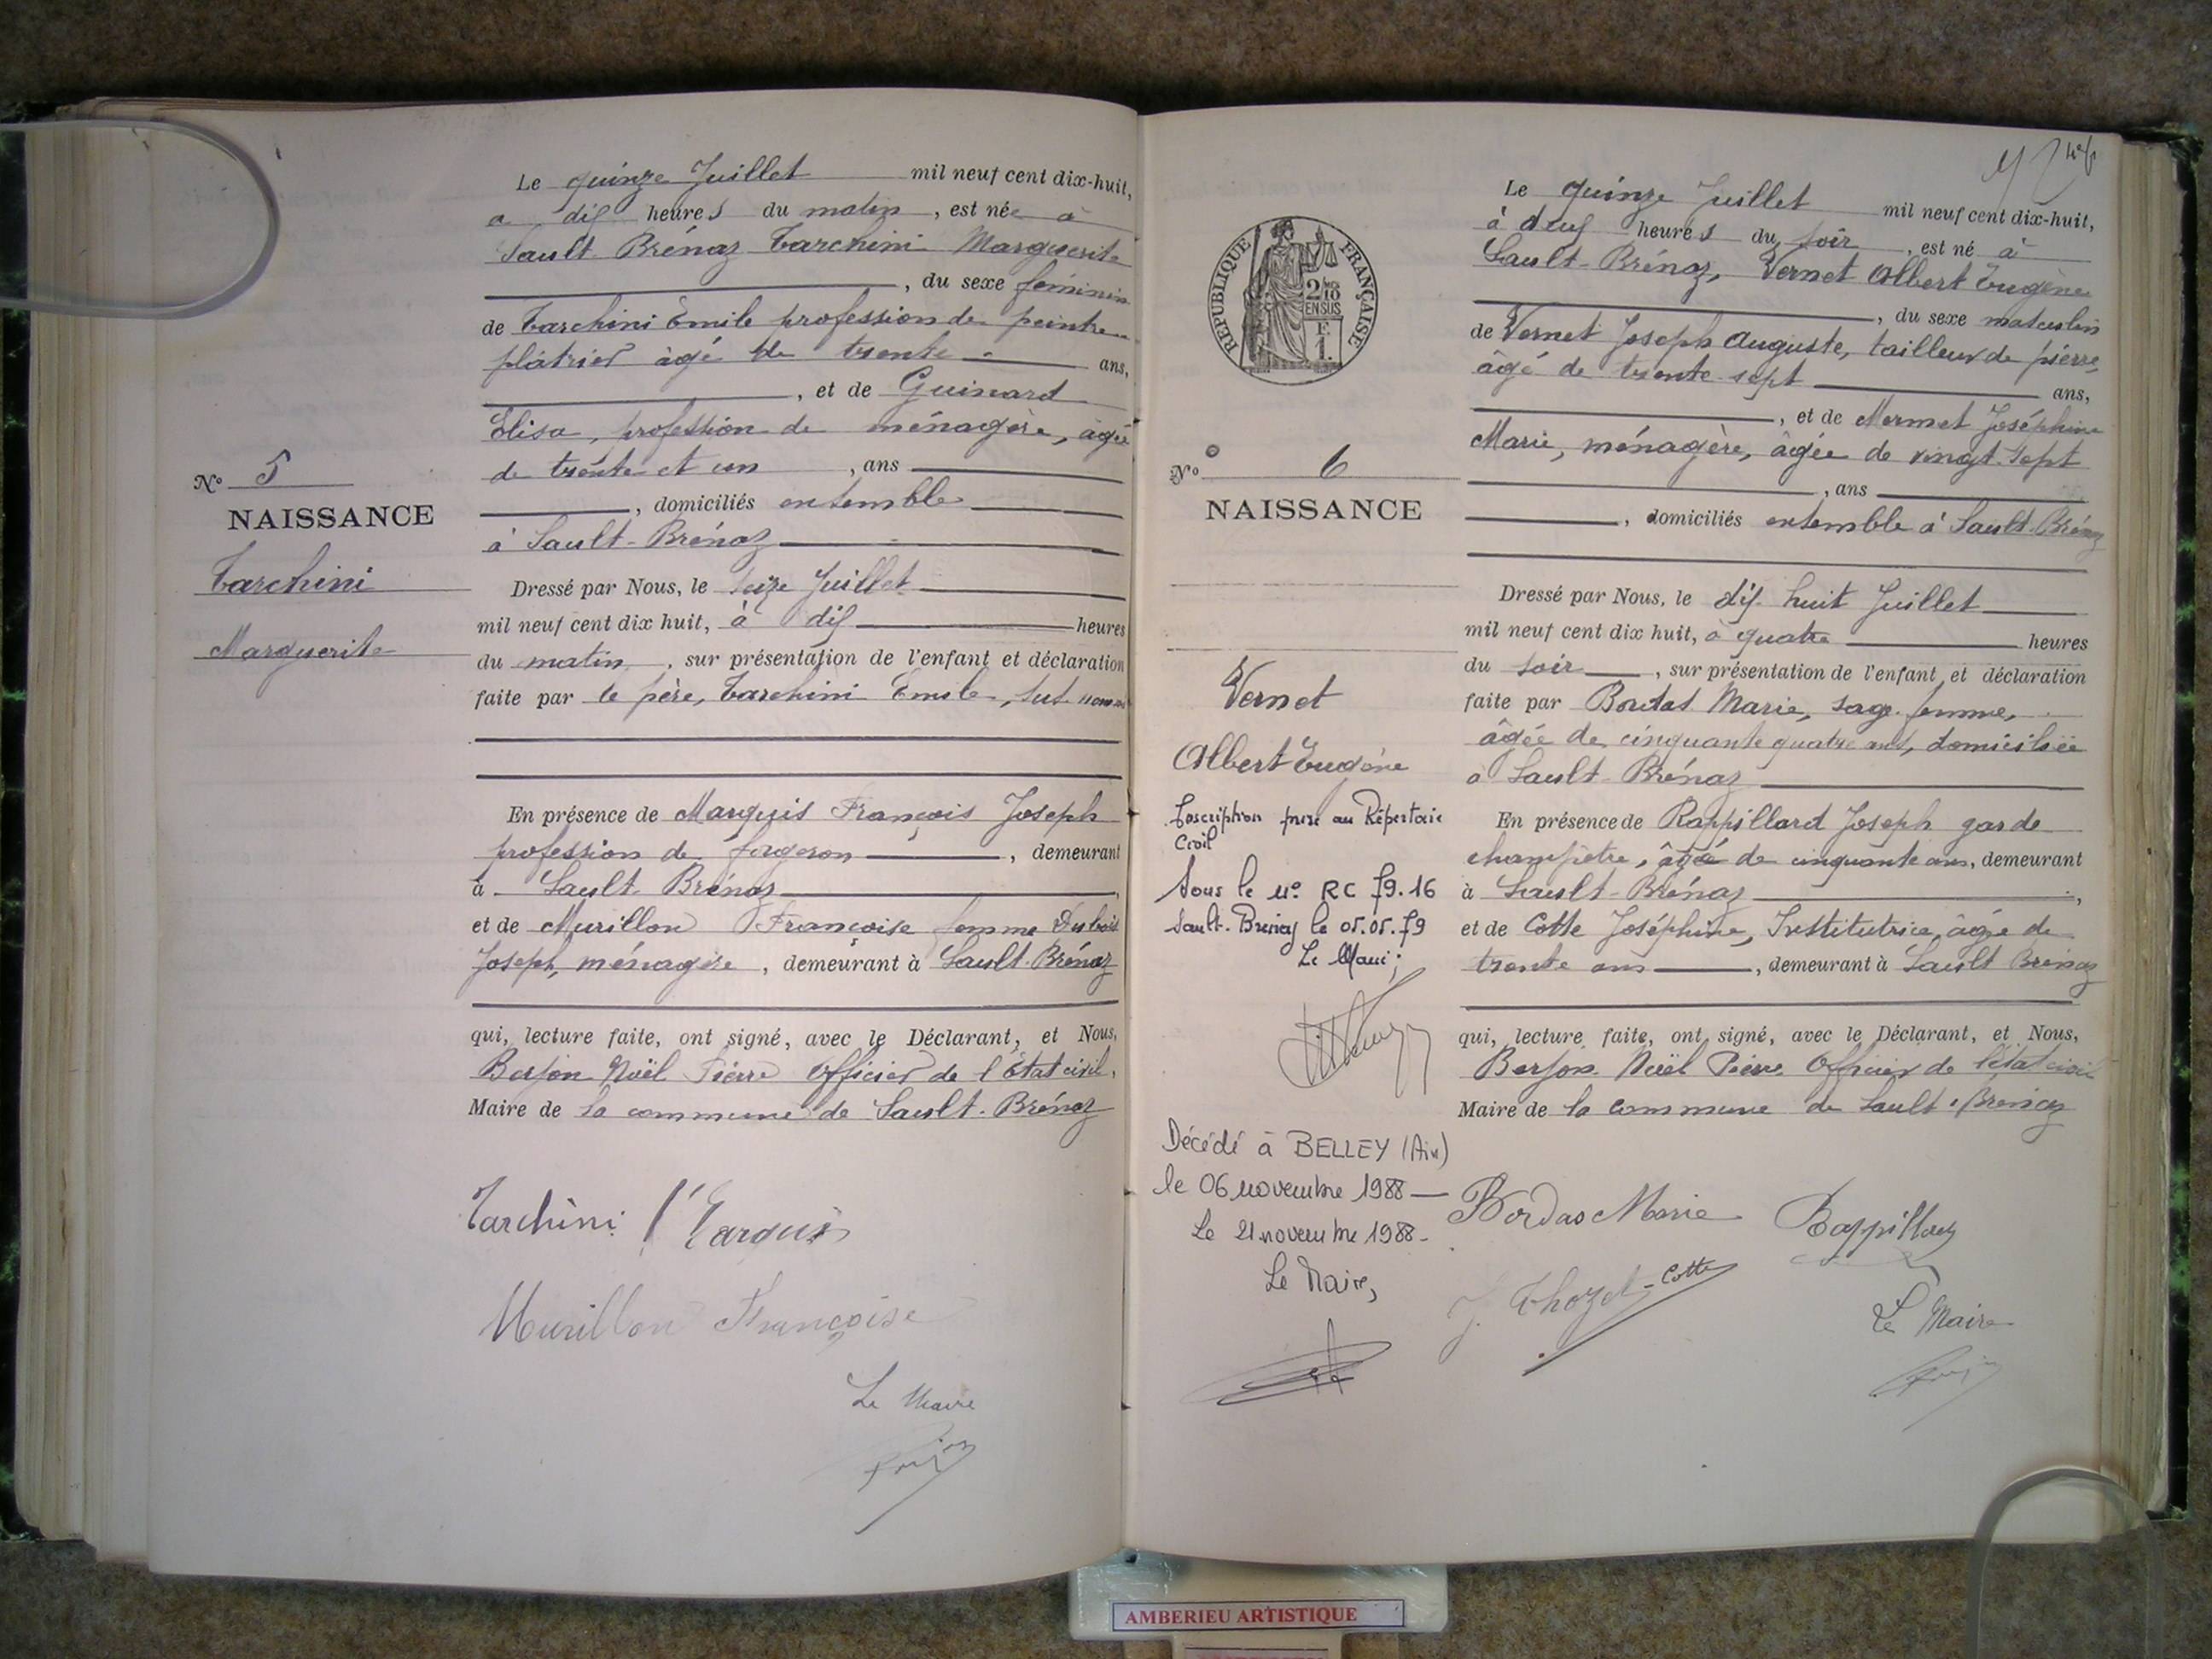 Le quinze Juillet mil neuf cent dix-huit,
a dix heures du matin, est née à
Sault-Brénaz Tarchini Marguerite
, du sexe féminin
de Tarchini Émile profession de peintre
plâtrier âgé de trente ans,
, et de Guinard
Elisa, profession de ménagère, âgée
de trente et un, ans
, domiciliés ensemble
à Sault-Brénaz
Dressé par Nous, le seize Juillet
mil neuf cent dix huit, à dix heures
du matin, sur présentation de l'enfant et déclaration
faite par le père, Tarchini Emile, sus nommé
En présence de Marquis François Joseph
profession de forgeron, demeurant
à Sault-Brénaz,
et de Murillon Françoise femme Dubois
Joseph, ménagère, demeurant à Sault-Brénaz
qui, lecture faite, ont signé, avec le Déclarant, et Nous,
Berjon Noël Pierre Officier de l'État civil,
Maire de la commune de Sault-Brénaz
Nº 5
NAISSANCE
Tarchini
Marguerite
Tarchini Marquis
Murillon Françoise
Le Maire
RÉPUBLIQUE FRANÇAISE
2/10 EN SUS
1 F.
Nº 6
NAISSANCE
Vernet
Albert Eugène
Inscription prise au Répertoire
Civil
Sous le nº RC 79.16
Sault-Brénaz le 05.05.79
Le Maire;
Décédé à BELLEY (Ain)
le 06 novembre 1988
Le 21 novembre 1988.
Le Maire,
Le quinze Juillet mil neuf cent dix-huit,
à deux heures du soir, est né à
Sault-Brénaz, Vernet Albert Eugène
, du sexe masculin
de Vernet Joseph Auguste, tailleur de pierre,
âgé de trente-sept ans,
, et de Mermet Joséphine
Marie, ménagère, âgée de vingt-sept
, ans
, domiciliés ensemble à Sault-Brénaz
Dressé par Nous, le dix-huit Juillet
mil neuf cent dix huit, à quatre heures
du soir, sur présentation de l'enfant et déclaration
faite par Bordas Marie, sage-femme,
âgée de cinquante quatre ans, domiciliée
à Sault-Brénaz
En présence de Rappillard Joseph garde
champêtre, âgé de cinquante ans, demeurant
à Sault-Brénaz,
et de Cotte Joséphine, Institutrice, âgée de
trente ans, demeurant à Sault Brénaz
qui, lecture faite, ont signé, avec le Déclarant, et Nous,
Berjon Noël Pierre Officier de l'état civil
Maire de la commune de Sault-Brénaz
Bordas Marie Rappillard
J. Thozet-Cotte
Le Maire
AMBERIEU ARTISTIQUE